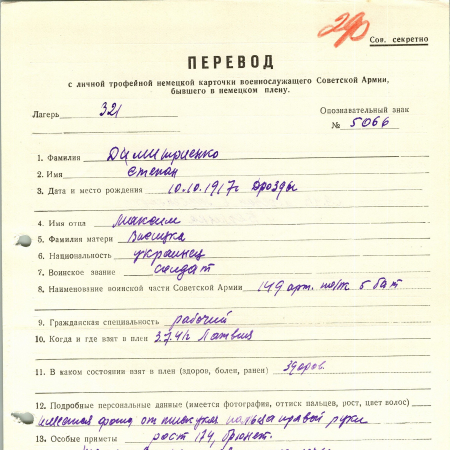 290
Сов. секретно
ПЕРЕВОД
с личной трофейной немецкой карточки военнослужащего Советской Армии,
бывшего в немецком плену.
Лагерь 321
Опознавательный знак
№ 5066
1. Фамилия Димитриенко
2. Имя Степан
3. Дата и место рождения 10.10.1917г. Дрозды
4. Имя отца Максим
5. Фамилия матери
6. Национальность украинец
7. Воинское звание солдат
8. Наименование воинской части Советской Армии 149 арт. полк 5 бат
9. Гражданская специальность рабочий
10. Когда и где взят в плен 3.7.41г. Латвия
11. В каком состоянии взят в плен (здоров, болен, ранен) здоров.
12. Подробные персональные данные (имеется фотография, оттиск пальцев, рост, цвет волос)
имеется фотогр оттиск указ пальца правой руки
13. Особые приметы рост 174, брюнет.